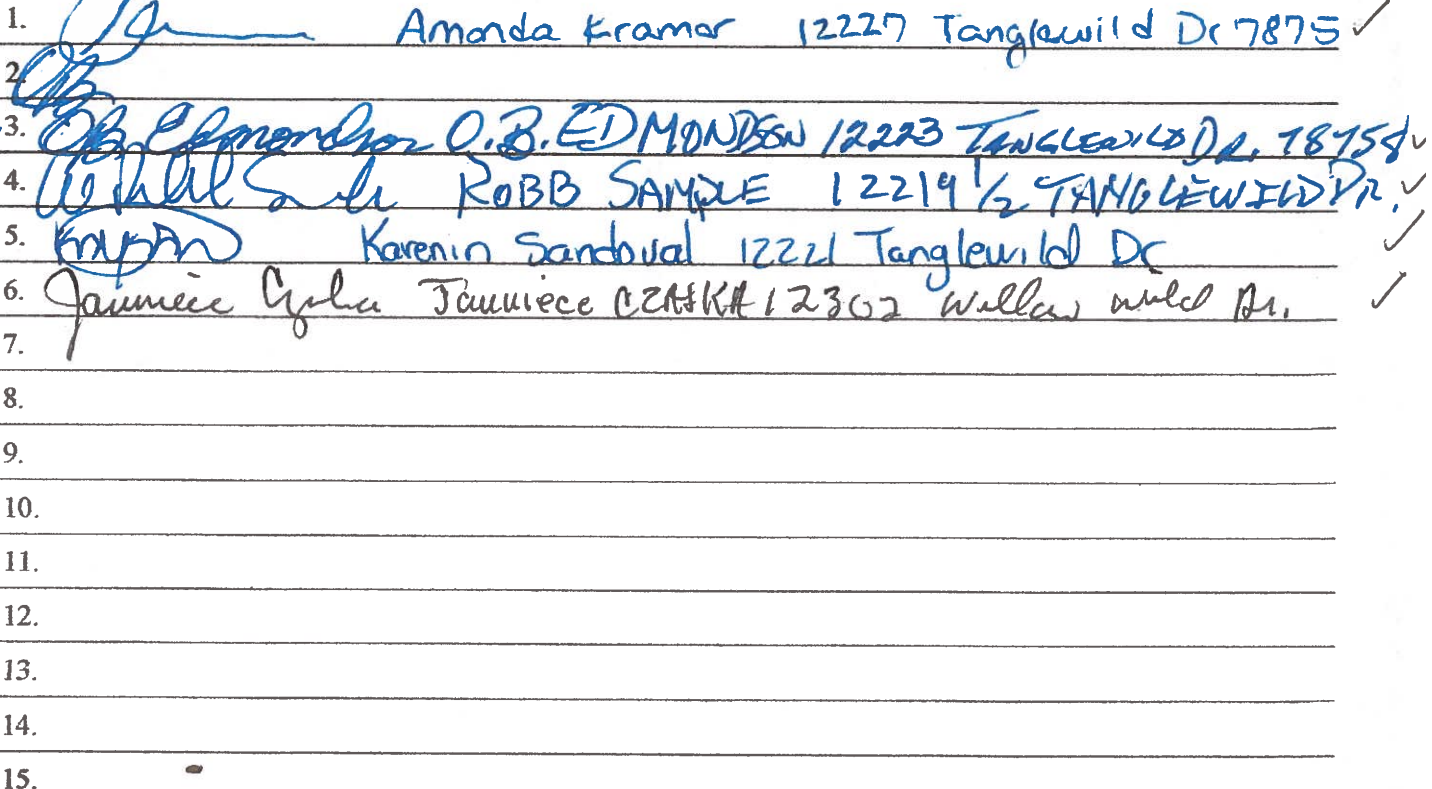 1. Amanda Kramer 12227 Tanglewild Dr 7875 ✓
2.
3. OB Edmondson O.B. EDMONDSON 12223 TANGLEWILD DR. 78758 ✓
4. ROBB SAMPLE 12219 1/2 TANGLEWILD DR. ✓
5. Karenin Sandoval 12221 Tanglewild Dr ✓
6. Janniece Janniece CZAJKA 12302 Willow wild Dr. ✓
7.
8.
9.
10.
11.
12.
13.
14.
15.